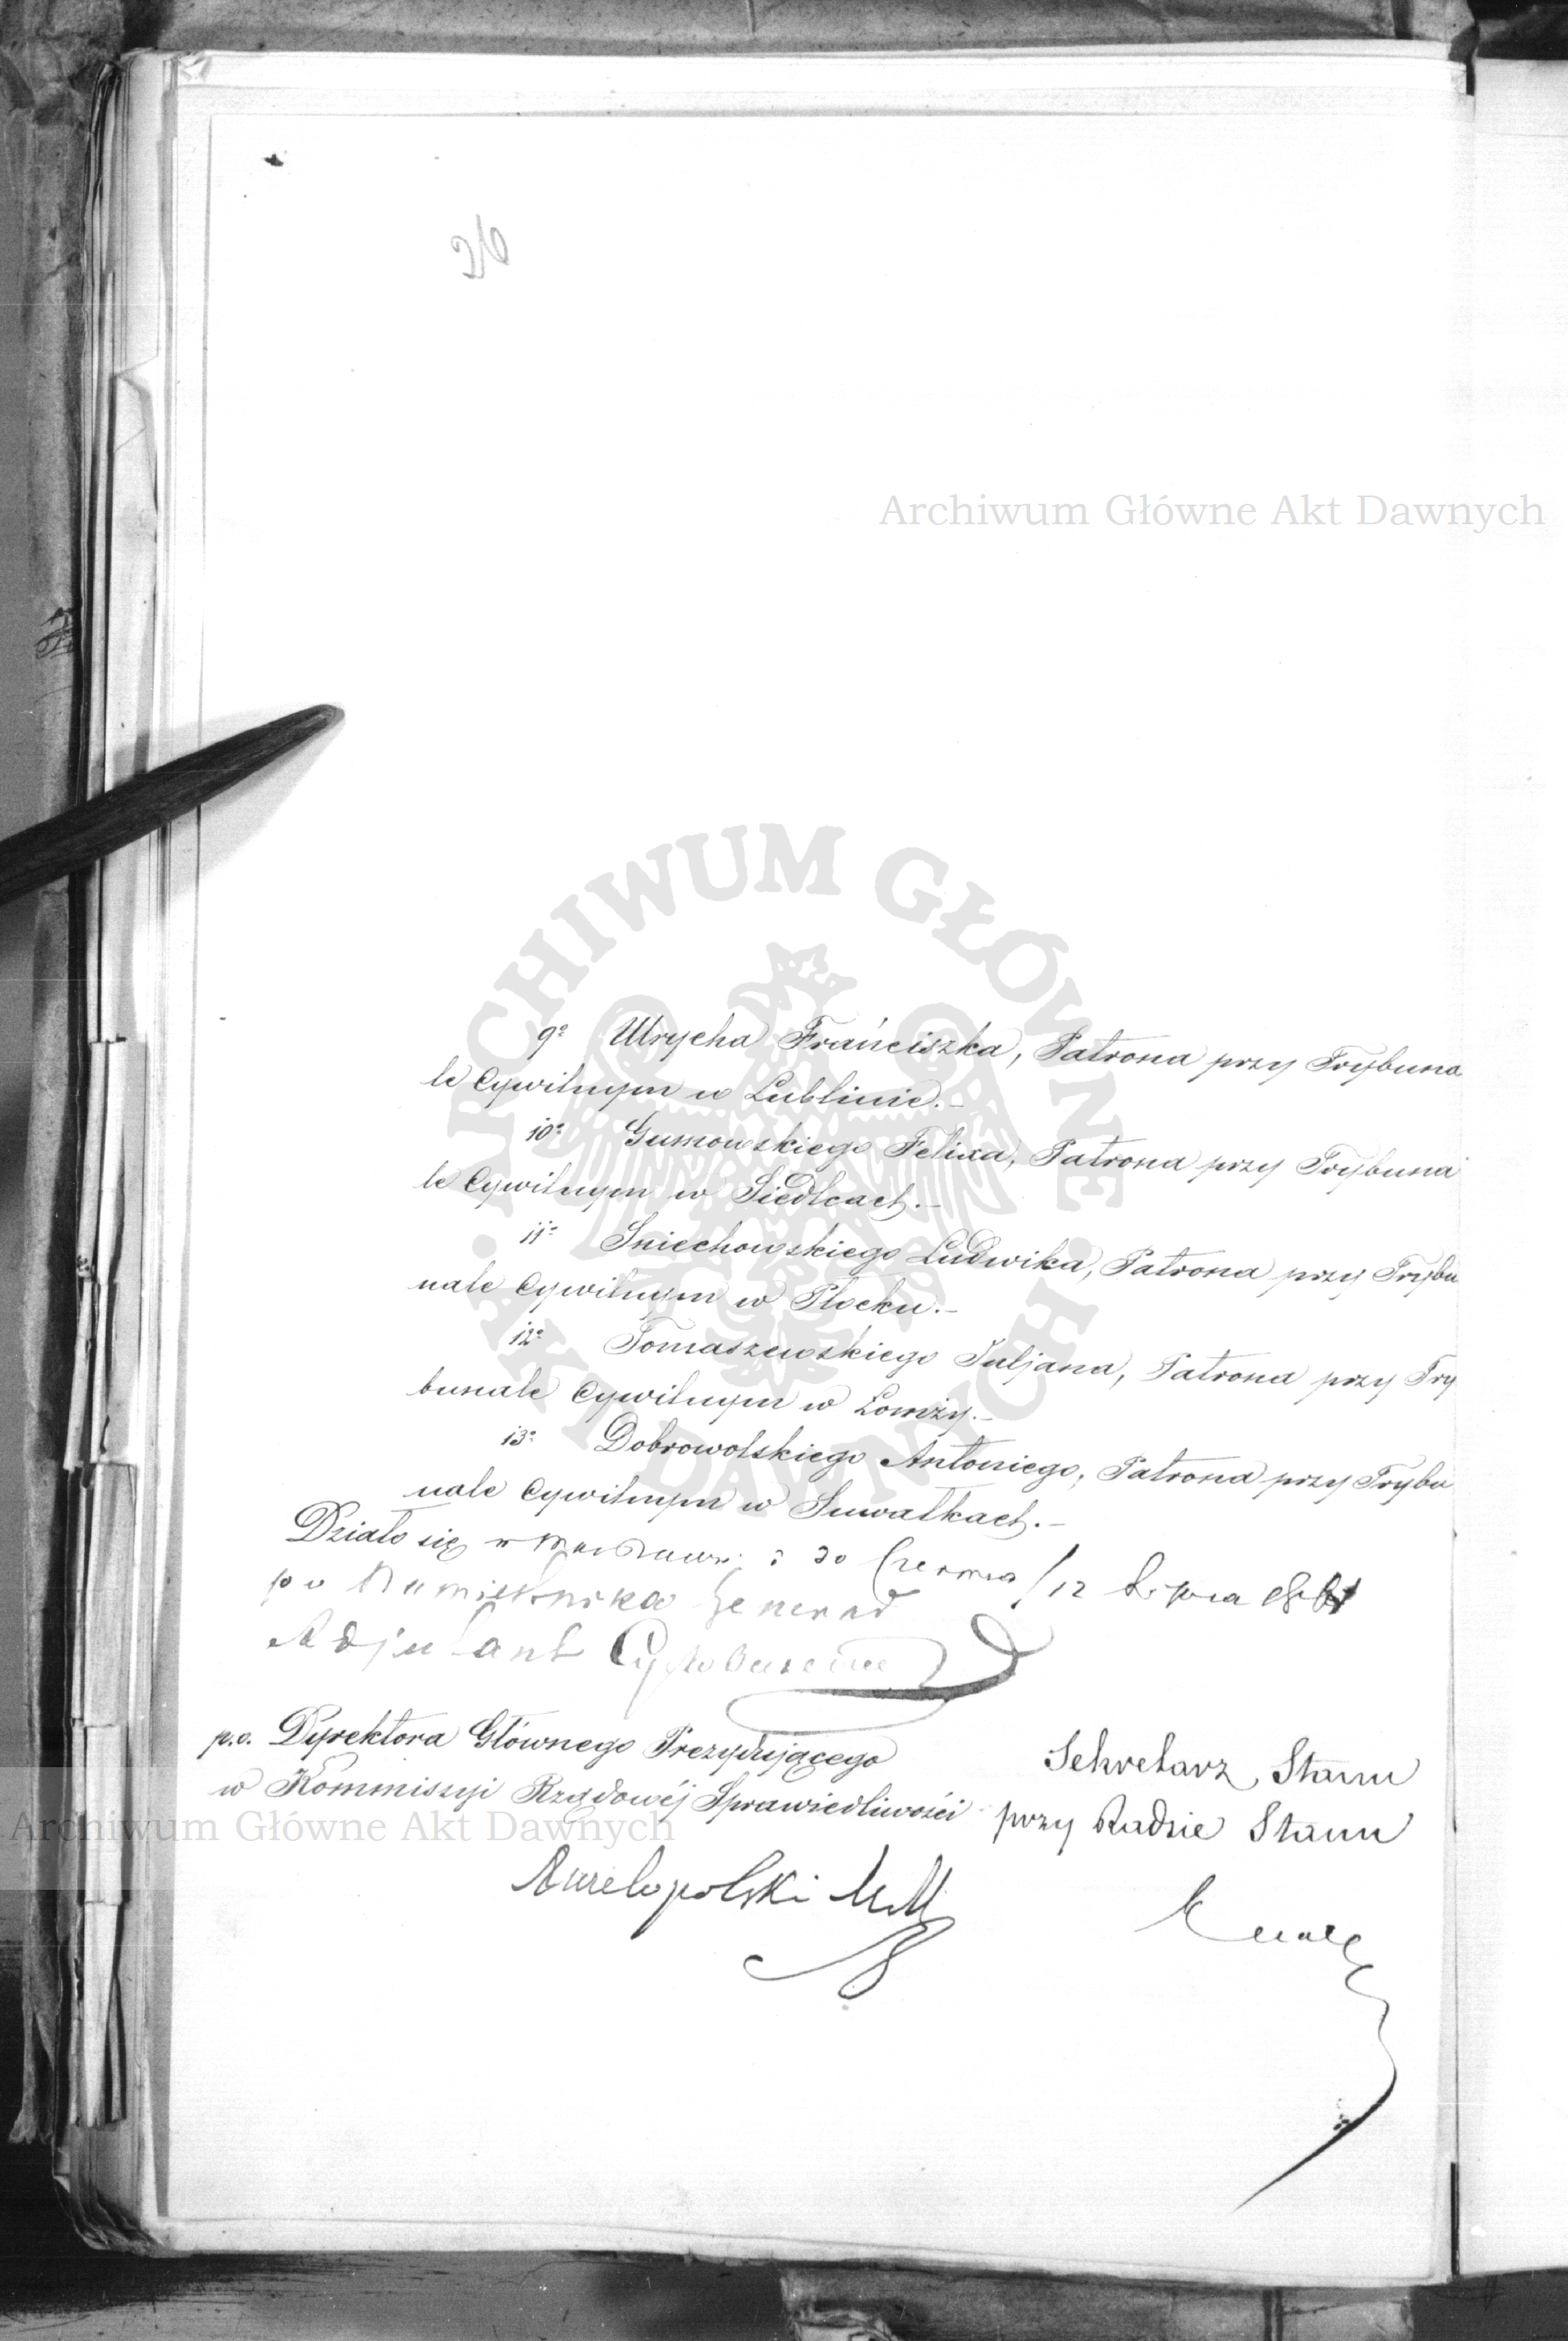 26
Archiwum Główne Akt Dawnych
ARCHIWUM GŁÓWNE AKT DAWNYCH
9º Ulrycha Franciszka, Patrona przy Trybuna
le Cywilnym w Lublinie.–
10º Gumowskiego Felixa, Patrona przy Trybuna
le Cywilnym w Siedlcach.–
11º Sniechowskiego Ludwika, Patrona przy Trybu
nale Cywilnym w Płocku.–
12º Tomaszewskiego Juljana, Patrona przy Try
bunale Cywilnym w Łomży.–
13º Dobrowolskiego Antoniego, Patrona przy Trybu
nale Cywilnym w Suwałkach.–
Działo się w Warszawie 30 Czerwca / 12 Lipca 1861
po Namiestnika Generał
Adjutant
p.o. Dyrektora Głównego Prezydującego
w Kommissyi Rządowéj Sprawiedliwości
Wielopolski
Sekretarz Stanu
przy Radzie Stanu
Archiwum Główne Akt Dawnych